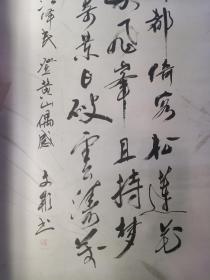 都倚客松莲花
飞峰且持梦
奇景日破云涛万
泽民登黄山偶感